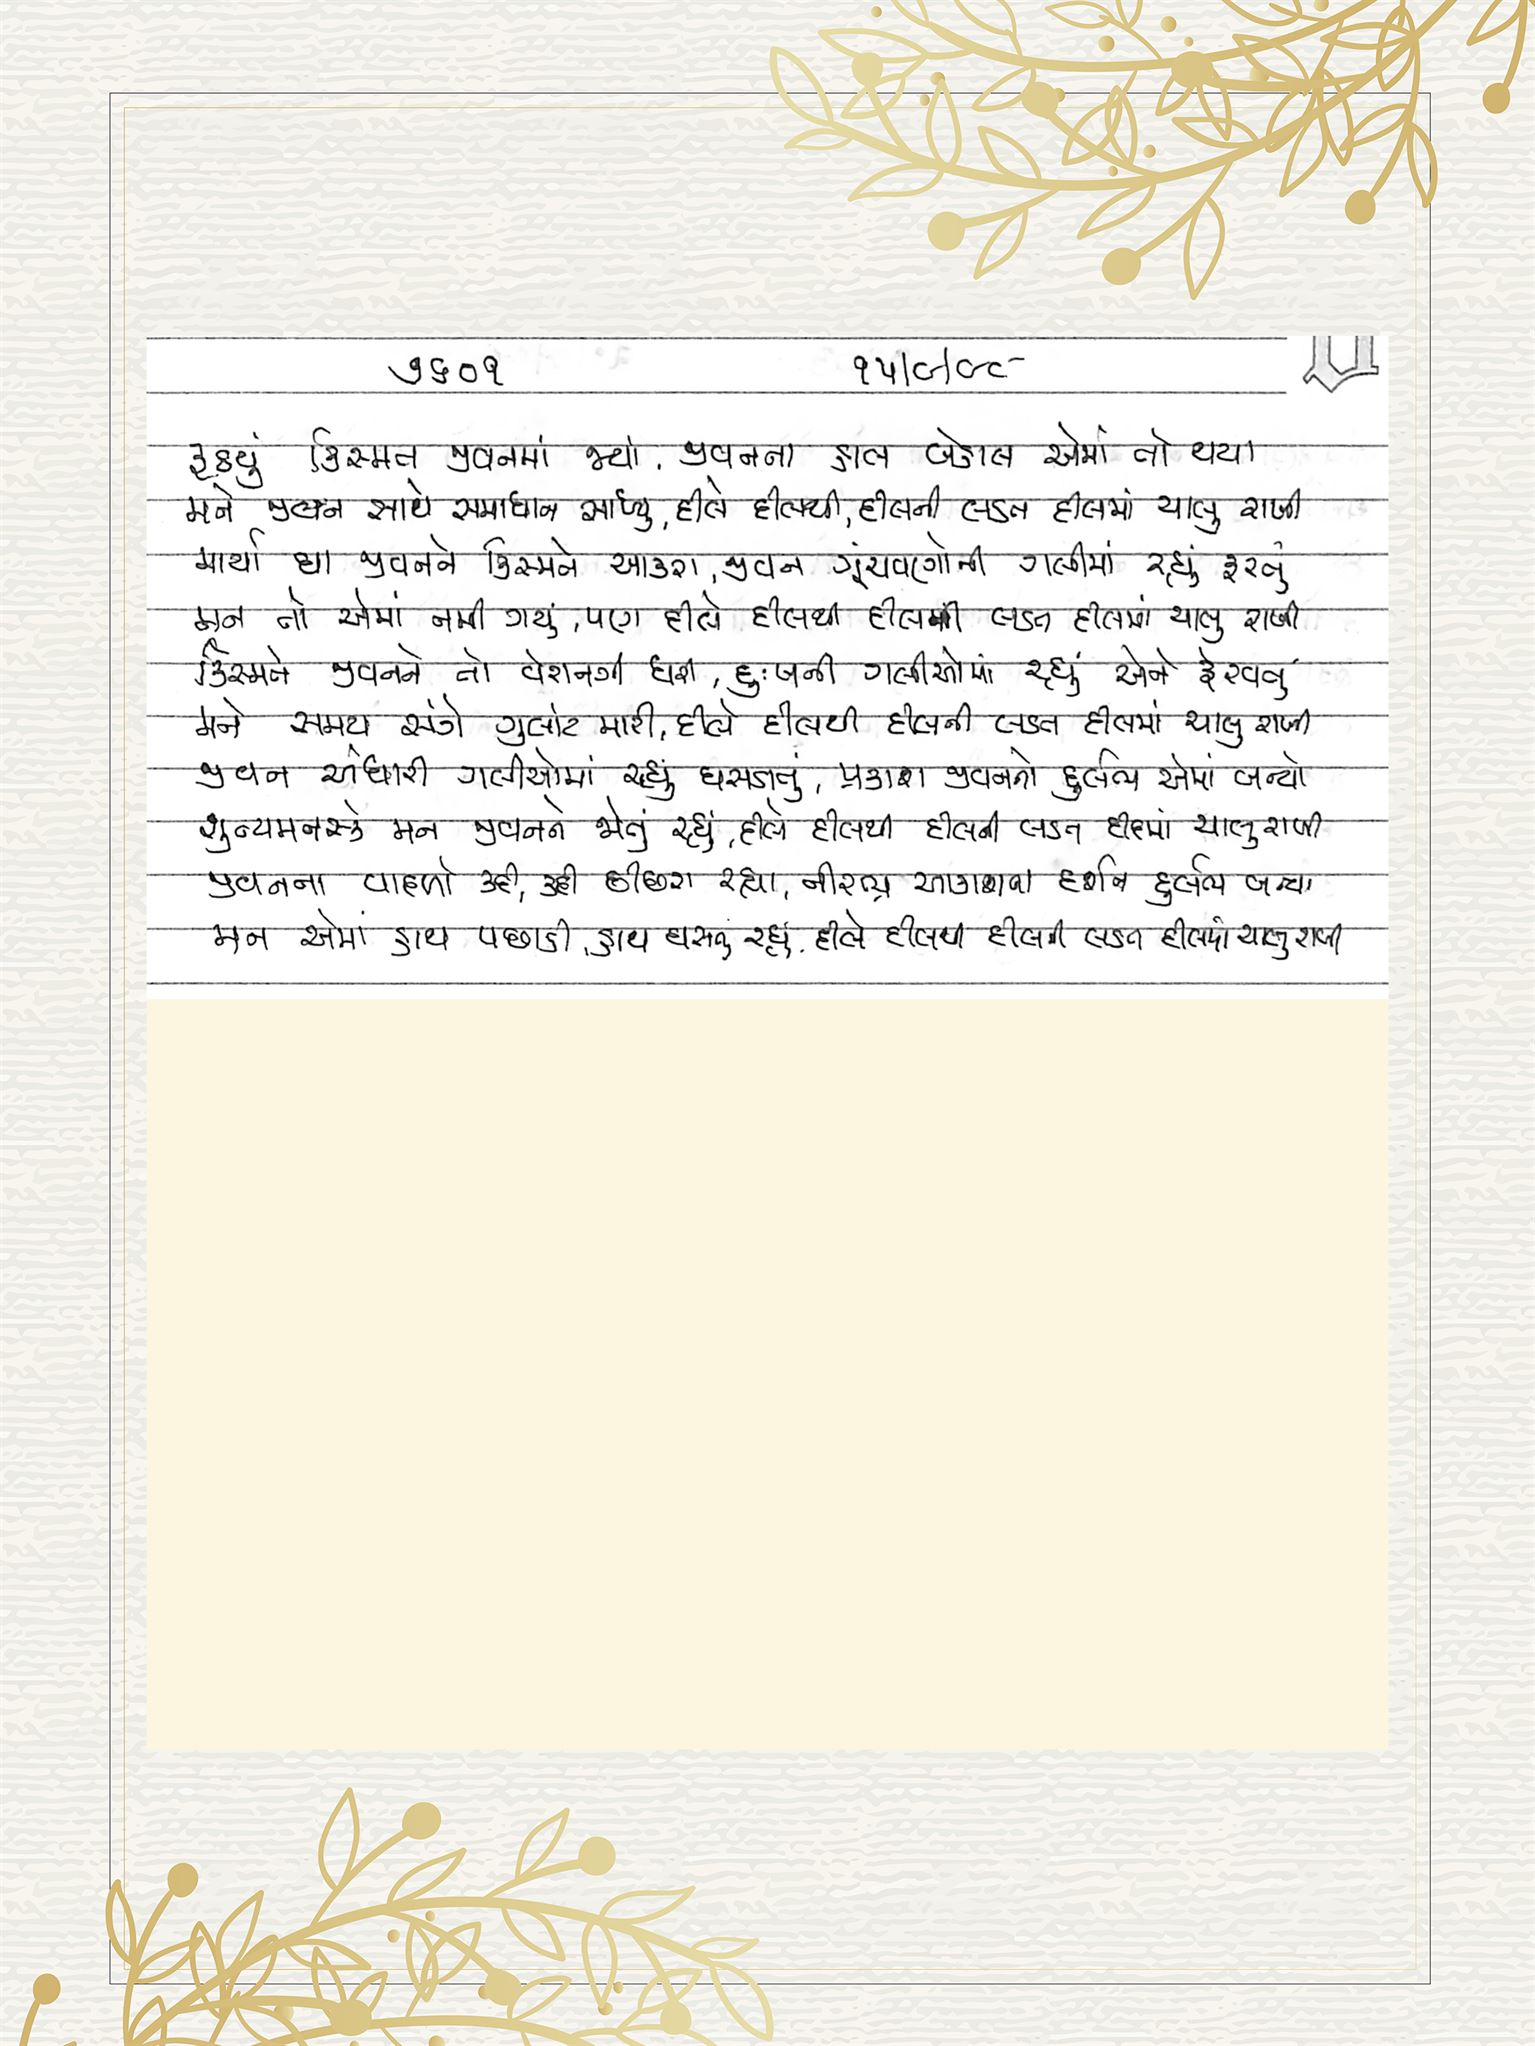 ૭૬૦૧ ૧૫/૯/૯૮
રૂઠયું કિસ્મત જીવનમાં જ્યાં, જીવનના હાલ બેહાલ એમાં તો થયા
મને જીવન સાથે સમાધાન સાધ્યુ, દીલે દીલથી, દીલની લડત દીલમાં ચાલુ રાખી
માર્યા ઘા જીવનને કિસ્મતે આકરા, જીવન ગૂંચવણોની ગલીમાં રહ્યું ફરતું
મન તો એમાં નમી ગયું, પણ દીલે દીલથી દીલની લડત દીલમાં ચાલુ રાખી
કિસ્મતે જીવનને તો વેરાનગી ધરી, દુઃખની ગલીઓમાં રહ્યું એને ફેરવતું
મને સમય સંગે ગુલાંટ મારી, દીલે દીલથી દીલની લડત દીલમાં ચાલુ રાખી
જીવન અંધારી ગલીઓમાં રહ્યું ઘસડાતું, પ્રકાશ જીવનનો દુર્લભ એમાં બન્યો
શુન્યમનસ્કે મન જીવનને જોતું રહ્યું, દીલે દીલથી દીલની લડત દીલમાં ચાલુ રાખી
જીવનના વાદળો કદી, કદી છીછરા રહ્યા, નીરભ્ર આકાશના દર્શન દુર્લભ બન્યા
મન એમાં હાથ પછાડી, હાથ ઘસતું રહ્યું. દીલે દીલથી દીલની લડત દીલમાં ચાલુ રાખી